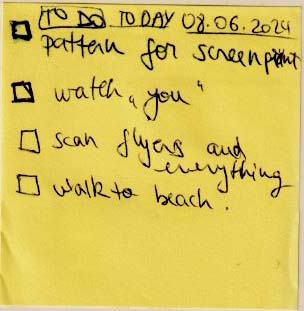 TO DO TODAY 08.06.2024
pattern for screenprint
watch „you“
scan flyers and
everything
walk to beach.